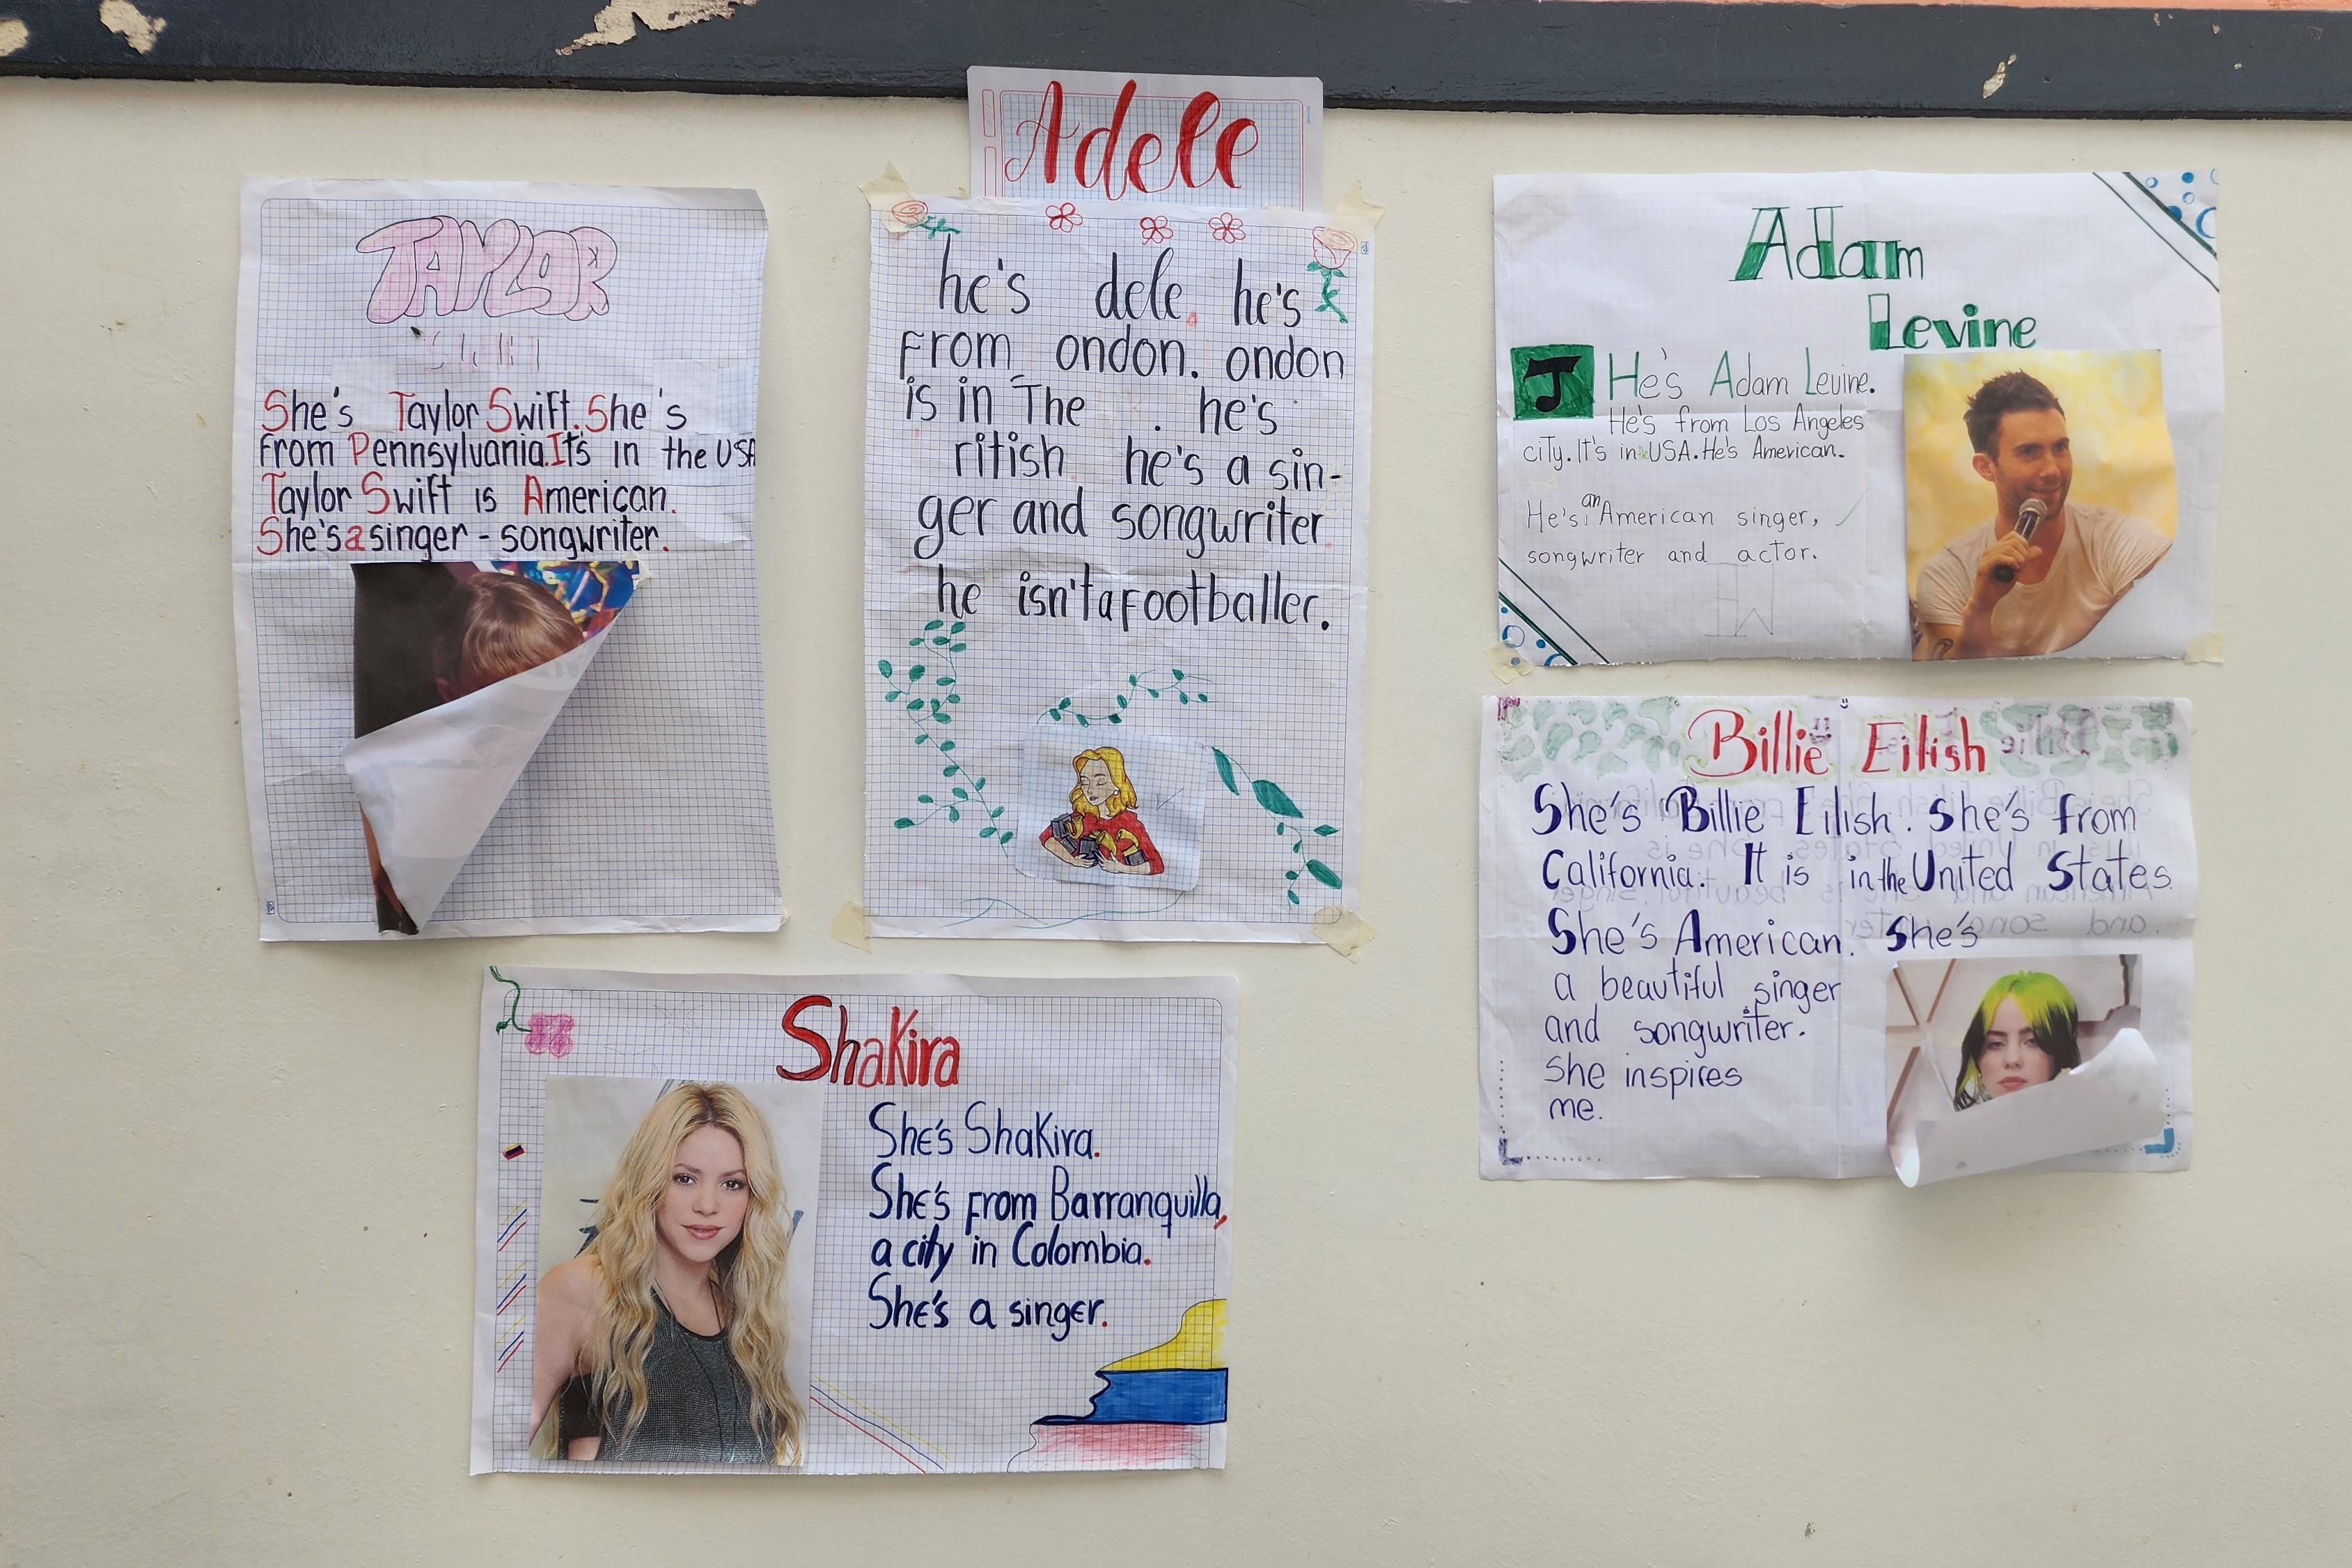 TAYLOR
She's Taylor Swift. She's
From Pennsylvania. It's in the USA
Taylor Swift is American.
She's a singer - songwriter.
Adele
he's dele. he's
From ondon. ondon
is in The . he's
ritish he's a sin-
ger and songwriter
he isn't a Footballer.
Adam
Levine
He's Adam Levine.
He's from Los Angeles
city. It's in USA. He's American.
He's an American singer,
songwriter and actor.
Billie Eilish
She's Billie Eilish. She's from
California. It is in the United States
She's American. She's
a beautiful singer
and songwriter.
she inspires
me.
Shakira
She's Shakira.
She's from Barranquilla,
a city in Colombia.
She's a singer.